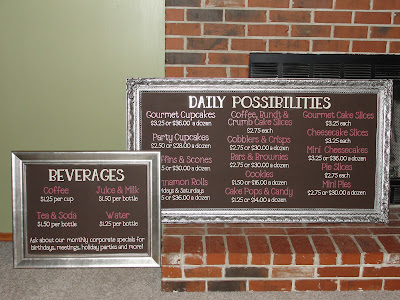 DAILY POSSIBILITIES
Gourmet Cupcakes
$3.25 or $36.00 a dozen
Party Cupcakes
$2.50 or $28.00 a dozen
ffins & Scones
or $30.00 a dozen
nnamon Rolls
days & Saturdays
or $36.00 a dozen
Coffee, Bundt &
Crumb Cake Slices
$2.75 each
Cobblers & Crisps
$2.75 or $30.00 a dozen
Bars & Brownies
$2.75 or $30.00 a dozen
Cookies
$1.50 or $16.00 a dozen
Cake Pops & Candy
$1.25 or $14.00 a dozen
Gourmet Cake Slices
$3.25 each
Cheesecake Slices
$3.25 each
Mini Cheesecakes
$3.25 or $36.00 a dozen
Pie Slices
$2.75 each
Mini Pies
$2.75 or $30.00 a dozen
BEVERAGES
Coffee
$1.25 per cup
Juice & Milk
$1.50 per bottle
Tea & Soda
$1.50 per bottle
Water
$1.25 per bottle
Ask about our monthly corporate specials for
birthdays, meetings, holiday parties and more!